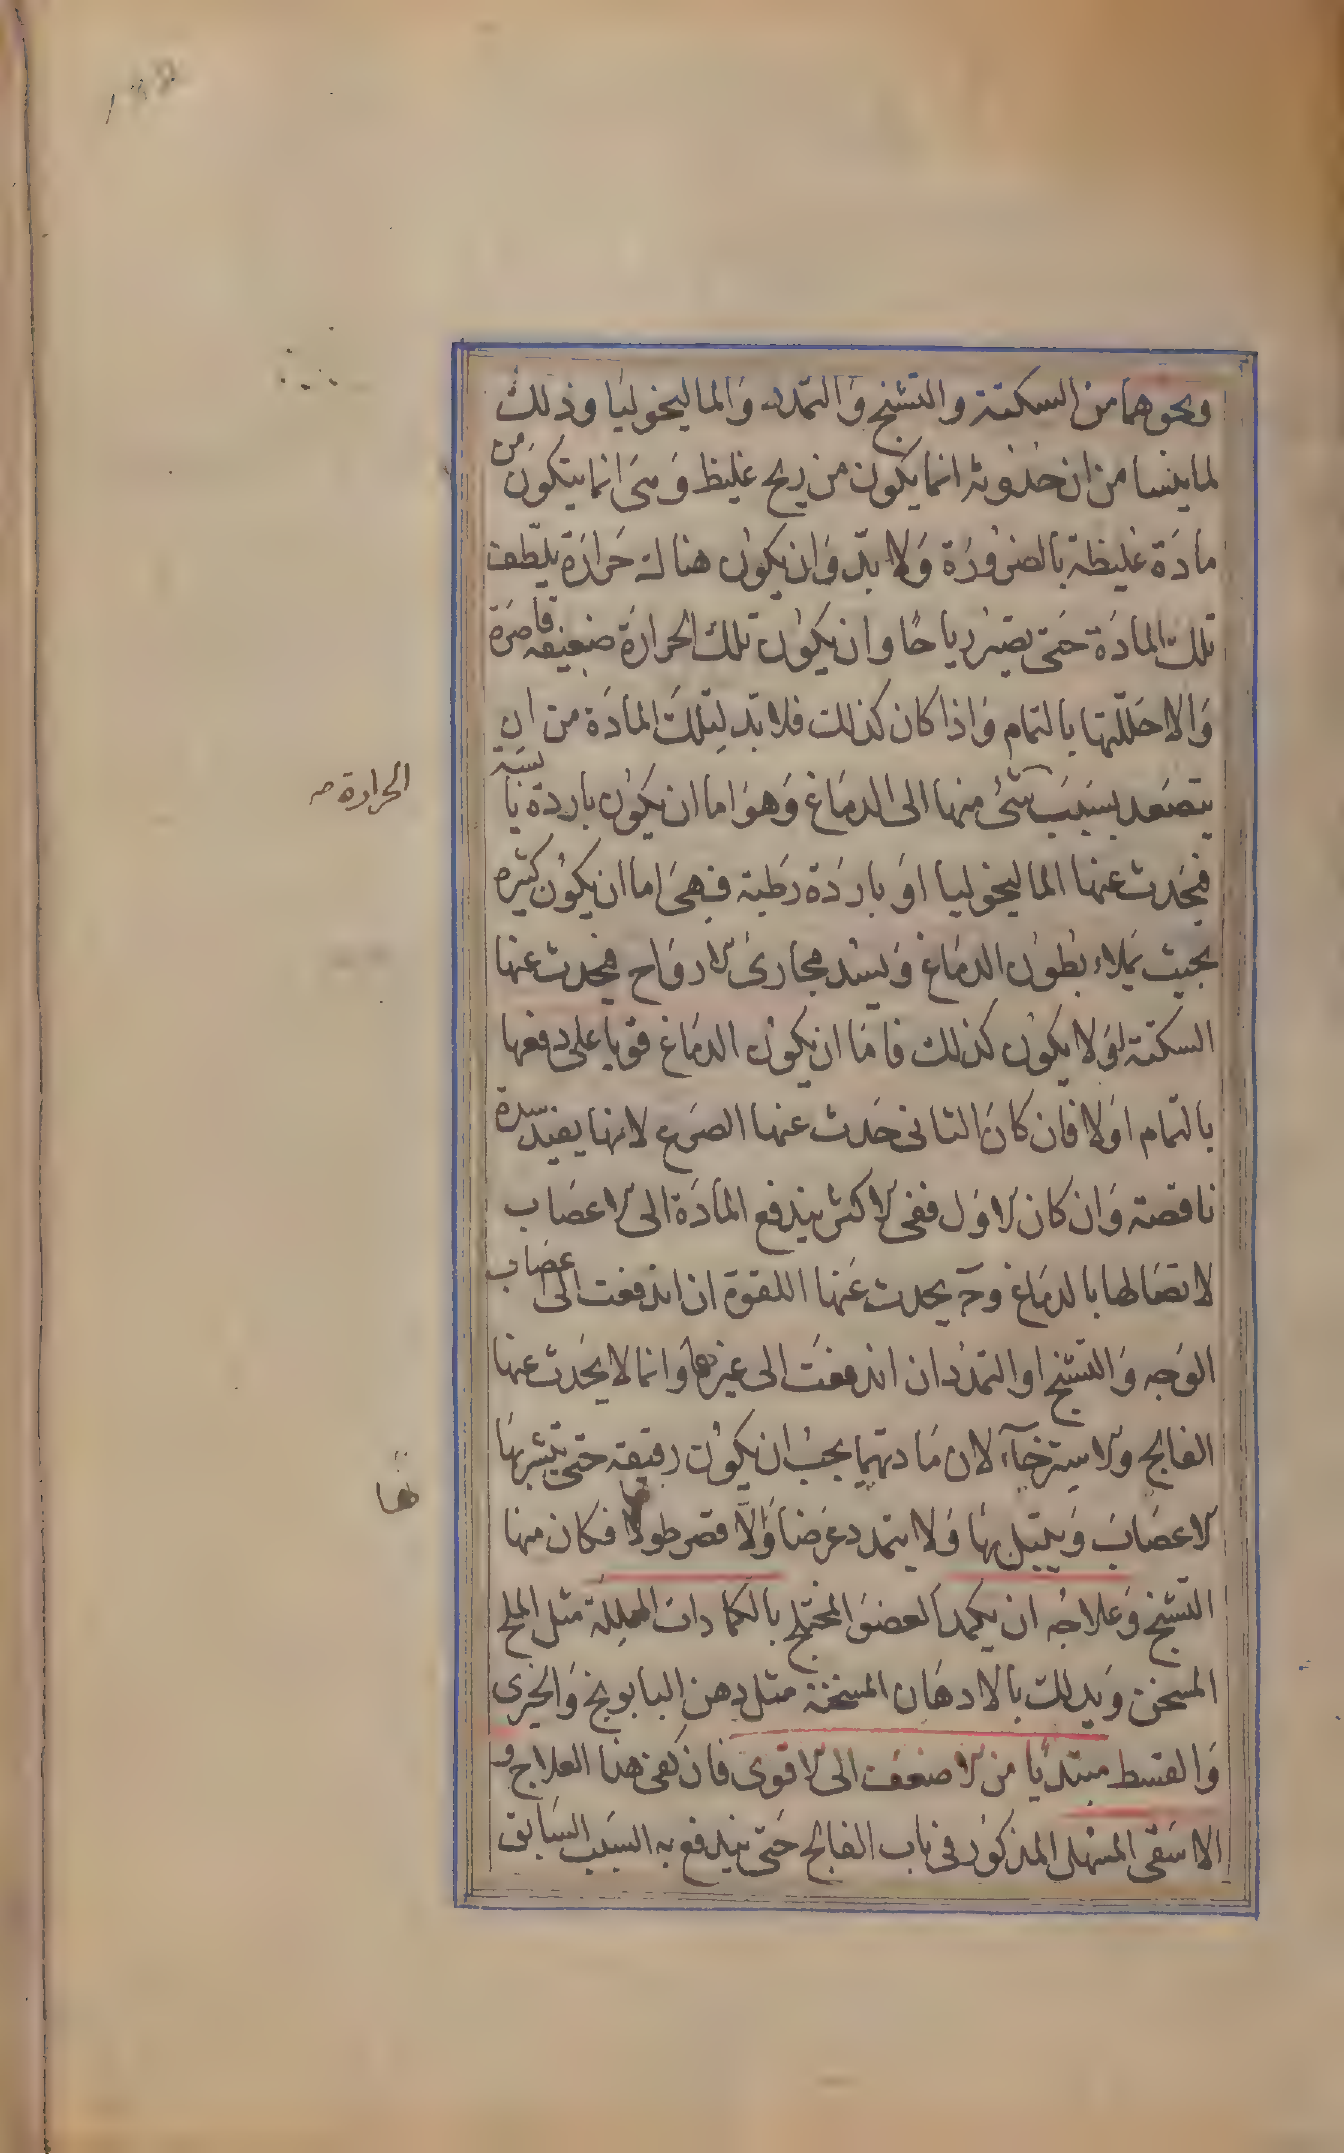 ونحوهما من السكتة والتشنج والتمدد والماليخوليا وذلك
لما بينا من ان حدوثه انما يكون من ريح غليظ وهى انما يتكون من
مادة غليظة بالضرورة ولا بد وان يكون هناك حرارة يلطف
تلك المادة حتى يصير رياحا وان يكون تلك الحرارة ضعيفة قاصرة
والا حللتها بالتمام واذا كان كذلك فلا بد لتلك المادة من ان
يتصعد بسبب شئ منها الى الدماغ وهو اما ان يكون باردة يابسة
الحرارة صه
فيحدث عنها الماليخوليا او باردة رطبة فهى اما ان يكون كثيره
بحيث يملاء بطون الدماغ ويسد مجارى الارواح فيحدث عنها
السكتة او لا يكون كذلك فاما ان يكون الدماغ قويا على دفعها
بالتمام اولا فان كان الثانى حدث عنها الصرع لانها يفيد سدة
ناقصة وان كان الاول ففى الاكثر يندفع المادة الى الاعصاب
لاتصالها بالدماغ وح يحدث عنها اللقوة ان اندفعت الى اعصاب
الوجه والتشنج او التمدد ان اندفعت الى غيرها وانما لا يحدث عنها
الفالج والاسترخآء لان مادتهما يجب ان يكون رقيقة حتى يتشربها
ها
الاعصاب ويبتل بها ولا يتمدد عرضا والا قصر طولا فكان منها
التشنج وعلاجه ان يكمد العضو المختلج بالكمادات المحللة مثل الملح
المسخن ويدلك بالادهان المسخنة مثل دهن البابونج والخيرى
والقسط مبتديا من الاضعف الى الاقوى فان كفى هذا العلاج و
الا سقى المسهل المذكور فى باب الفالج حتى يندفع به السبب السابق